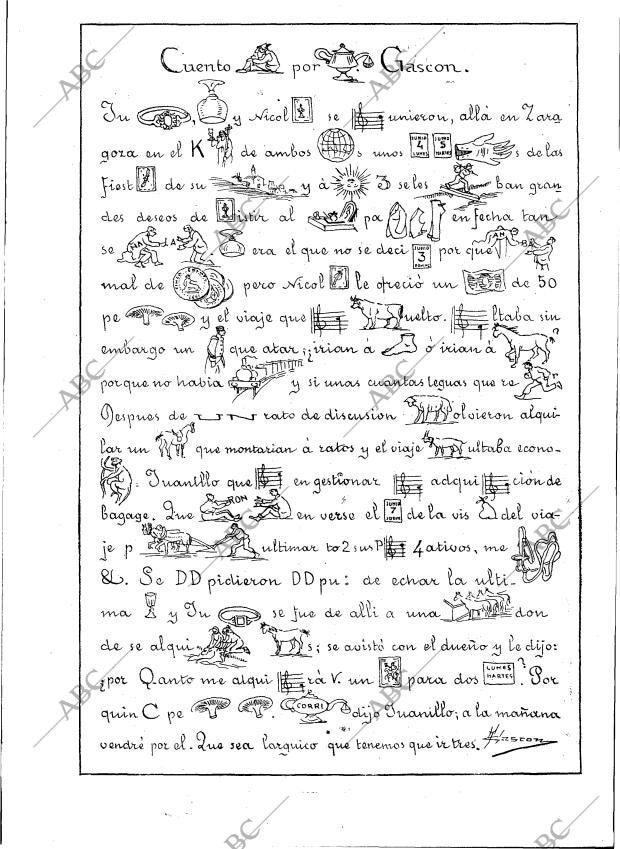 Cuento por Gascon.
Ju , y Nicol se unieron, allá en Zara
goza en el K de ambos s unos JUNIO 4 LUNES JUNIO 5 MARTES s de las
fiest de su y á 3 se les ban gran
des deseos de istir al pa en fecha tan
se NA A era el que no se deci JUNIO 3 DOMIN. por que AN BA
mal de pero Nicol le ofreció un de 50
pe y el viaje que uelto. ltaba sin
embargo un que atar; ¿irian á ó irian á
porque no habia y si unas cuantas leguas que re
Despues de UN rato de discusion olvieron alqui
lar un que montarian á ratos y el viaje ultaba econo-
. Juanillo que en gestionar adqui ción de
bagage. Que RON en verse el JUNIO 7 de la vis del via-
je p ultimar to2 sus p 4ativos, me
&L. Se DD pidieron DD pu: de echar la ulti-
ma y Ju se fue de alli a una don
de se alqui s; se avistó con el dueño y le dijo:
¿por Qanto me alqui rá V. un para dos LUNES MARTES? Por
quin C pe . CORRI dijo Juanillo; a la mañana
vendré por el. Que sea larguico que tenemos que ir tres. Gascon
ABC
ABC
ABC
ABC
ABC
ABC
ABC
ABC
ABC
ABC
ABC
ABC